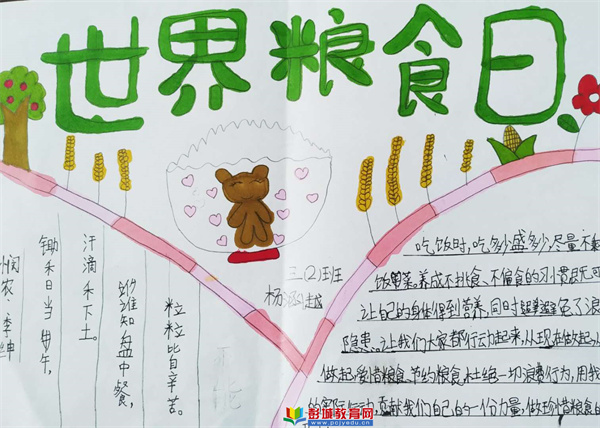 世界粮食日
三(2)班
杨
越
悯农 李绅
锄禾日当午,
汗滴禾下土。
谁知盘中餐,
粒粒皆辛苦。
吃饭时,吃多少盛多少,尽量不
饭菜。养成不挑食、不偏食的习惯既可
让自己的身体得到营养,同时避免了浪
隐患。让我们大家都行动起来,从现在做起,从
做起,爱惜粮食,节约粮食,杜绝一切浪费行为,用我
的实际行动,贡献我们自己的一个份力量,做珍惜粮食的
彭城教育网
www.pcjyedu.cn